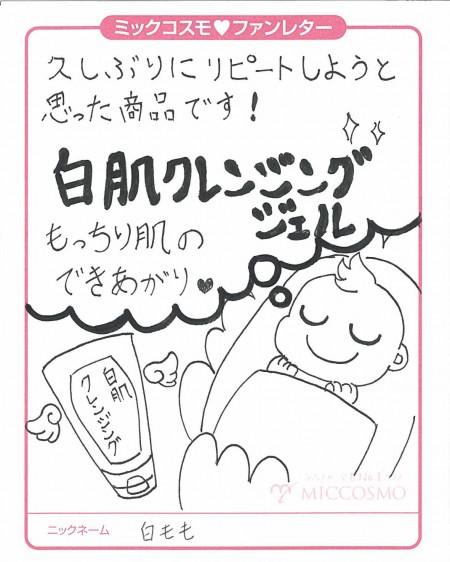 ミックコスモ♥ファンレター
久しぶりにリピートしようと
思った商品です!
白肌クレンジング
ジェル
もっちり肌の
できあがり♥
白肌
クレンジング
MICCOSMO
ニックネーム 白もも